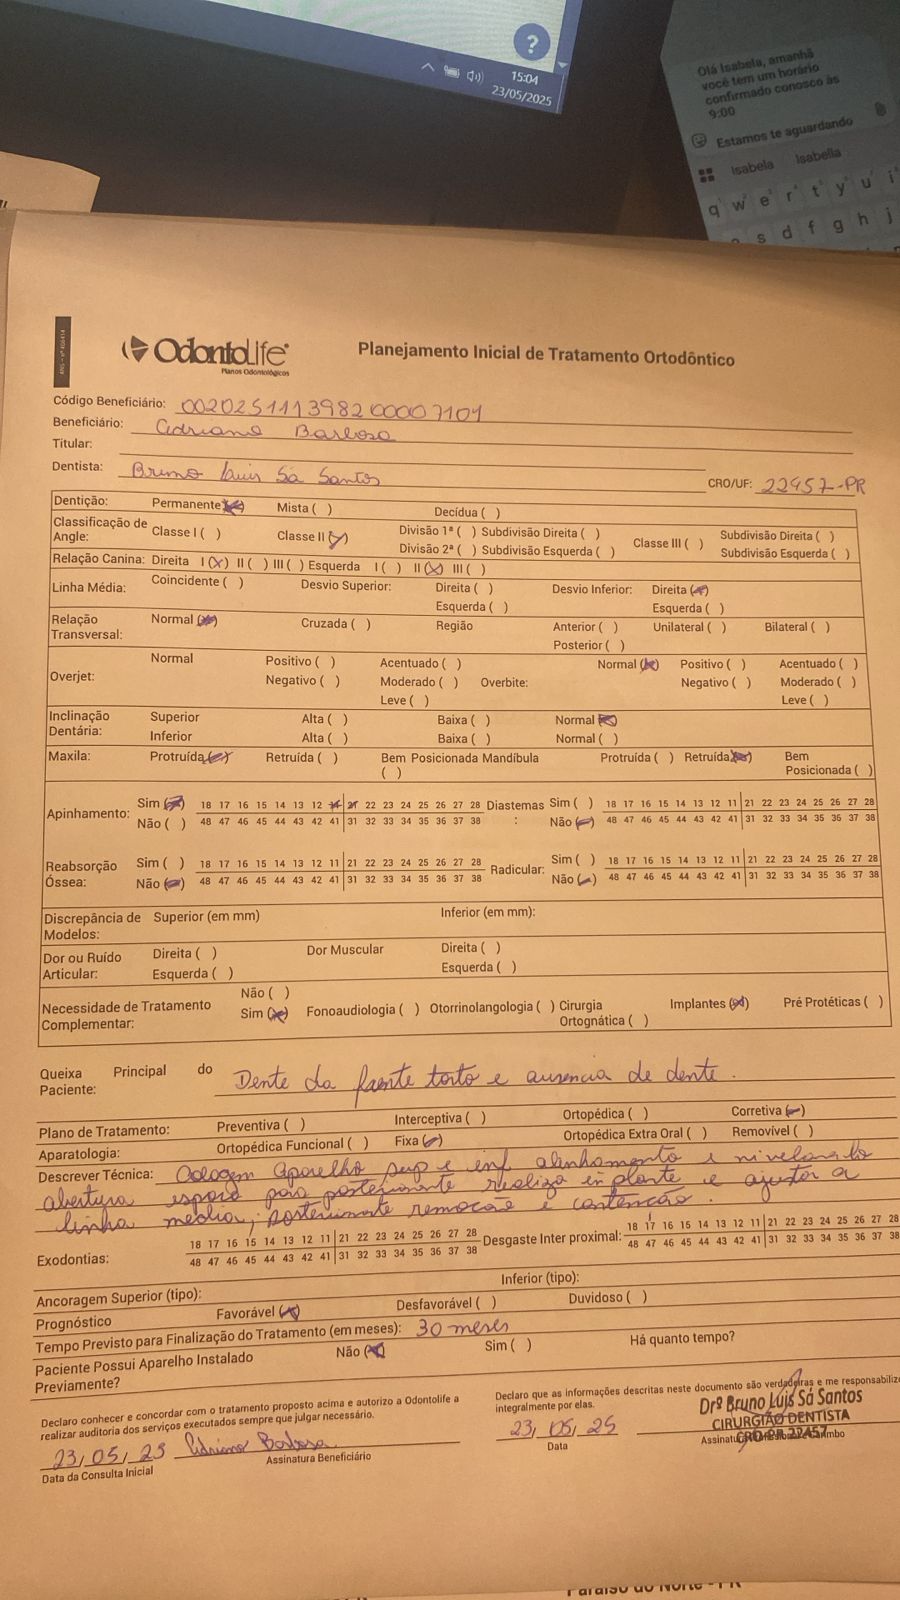 ?
15:04
23/05/2025
Olá Isabela, amanhã
você tem um horário
confirmado conosco às
9:00
Estamos te aguardando
Isabela Isabella
q w e r t y u i
s d f g h j
OdontoLife
Planos Odontológicos
Planejamento Inicial de Tratamento Ortodôntico
Código Beneficiário: 002025111398200007101
Beneficiário: Adriano Barbosa
Titular:
Dentista: Bruno Luis Sá Santos CRO/UF: 22457-PR
Dentição: Permanente (x) Mista ( ) Decídua ( )
Classificação de Angle: Classe I ( ) Classe II (x) Divisão 1ª ( ) Subdivisão Direita ( ) Classe III ( ) Subdivisão Direita ( )
Divisão 2ª ( ) Subdivisão Esquerda ( ) Subdivisão Esquerda ( )
Relação Canina: Direita I (x) II ( ) III ( ) Esquerda I ( ) II (x) III ( )
Linha Média: Coincidente ( ) Desvio Superior: Direita ( ) Desvio Inferior: Direita (x)
Esquerda ( ) Esquerda ( )
Relação Transversal: Normal (x) Cruzada ( ) Região Anterior ( ) Unilateral ( ) Bilateral ( )
Posterior ( )
Overjet: Normal Positivo ( ) Acentuado ( ) Overbite: Normal (x) Positivo ( ) Acentuado ( )
Negativo ( ) Moderado ( ) Negativo ( ) Moderado ( )
Leve ( ) Leve ( )
Inclinação Dentária: Superior Alta ( ) Baixa ( ) Normal (x)
Inferior Alta ( ) Baixa ( ) Normal ( )
Maxila: Protruída (x) Retruída ( ) Bem Posicionada ( ) Mandíbula Protruída ( ) Retruída (x) Bem Posicionada ( )
Apinhamento: Sim (x) 18 17 16 15 14 13 12 11 21 22 23 24 25 26 27 28 Diastemas : Sim ( ) 18 17 16 15 14 13 12 11 21 22 23 24 25 26 27 28
Não ( ) 48 47 46 45 44 43 42 41 31 32 33 34 35 36 37 38 Não (x) 48 47 46 45 44 43 42 41 31 32 33 34 35 36 37 38
Reabsorção Óssea: Sim ( ) 18 17 16 15 14 13 12 11 21 22 23 24 25 26 27 28 Radicular: Sim ( ) 18 17 16 15 14 13 12 11 21 22 23 24 25 26 27 28
Não (x) 48 47 46 45 44 43 42 41 31 32 33 34 35 36 37 38 Não (x) 48 47 46 45 44 43 42 41 31 32 33 34 35 36 37 38
Discrepância de Modelos: Superior (em mm) Inferior (em mm):
Dor ou Ruído Articular: Direita ( ) Dor Muscular Direita ( )
Esquerda ( ) Esquerda ( )
Necessidade de Tratamento Complementar: Não ( )
Sim (x) Fonoaudiologia ( ) Otorrinolangologia ( ) Cirurgia Ortognática ( ) Implantes (x) Pré Protéticas ( )
Queixa Principal do Paciente: Dente da frente torto e ausencia de dente.
Plano de Tratamento: Preventiva ( ) Interceptiva ( ) Ortopédica ( ) Corretiva (x)
Aparatologia: Ortopédica Funcional ( ) Fixa (x) Ortopédica Extra Oral ( ) Removível ( )
Descrever Técnica: Colagem aparelho sup e inf alinhamento e nivelamento
abertura espaço para posteriormente realiza implante e ajustar a
linha média, posteriormente remoção e contenção.
Exodontias: 18 17 16 15 14 13 12 11 21 22 23 24 25 26 27 28 Desgaste Inter proximal: 18 17 16 15 14 13 12 11 21 22 23 24 25 26 27 28
48 47 46 45 44 43 42 41 31 32 33 34 35 36 37 38 48 47 46 45 44 43 42 41 31 32 33 34 35 36 37 38
Ancoragem Superior (tipo): Inferior (tipo):
Prognóstico Favorável (x) Desfavorável ( ) Duvidoso ( )
Tempo Previsto para Finalização do Tratamento (em meses): 30 meses
Paciente Possui Aparelho Instalado Previamente? Não (x) Sim ( ) Há quanto tempo?
Declaro conhecer e concordar com o tratamento proposto acima e autorizo a Odontolife a
realizar auditoria dos serviços executados sempre que julgar necessário.
23/05/25 Adriano Barbosa
Data da Consulta Inicial Assinatura Beneficiário
Declaro que as informações descritas neste documento são verdadeiras e me responsabilizo
integralmente por elas.
23/05/25
Data
Drº Bruno Luis Sá Santos
CIRURGIÃO DENTISTA
CRO-PR 22457
Paraíso do Norte - PR